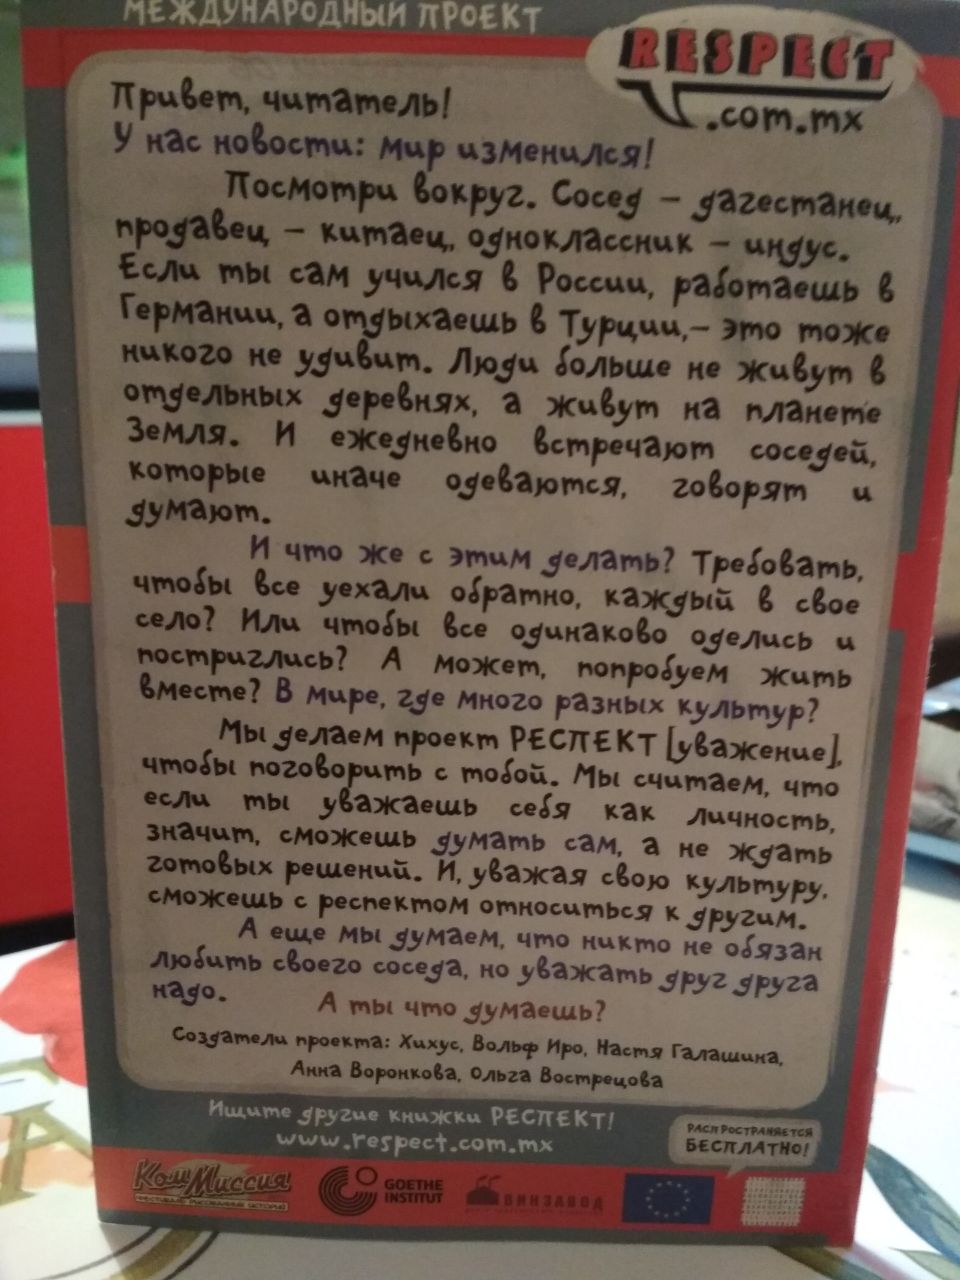 МЕЖДУНАРОДНЫЙ ПРОЕКТ
RESPECT
.com.mx
Привет, читатель!
У нас новости: мир изменился!
Посмотри вокруг. Сосед – дагестанец,
продавец – китаец, одноклассник – индус.
Если ты сам учился в России, работаешь в
Германии, а отдыхаешь в Турции,– это тоже
никого не удивит. Люди больше не живут в
отдельных деревнях, а живут на планете
Земля. И ежедневно встречают соседей,
которые иначе одеваются, говорят и
думают.
И что же с этим делать? Требовать,
чтобы все уехали обратно, каждый в свое
село? Или чтобы все одинаково оделись и
постриглись? А может, попробуем жить
вместе? В мире, где много разных культур?
Мы делаем проект РЕСПЕКТ [уважение],
чтобы поговорить с тобой. Мы считаем, что
если ты уважаешь себя как личность,
значит, сможешь думать сам, а не ждать
готовых решений. И, уважая свою культуру,
сможешь с респектом относиться к другим.
А еще мы думаем, что никто не обязан
любить своего соседа, но уважать друг друга
надо.
А ты что думаешь?
Создатели проекта: Хихус, Вольф Иро, Настя Галашина,
Анна Воронкова, Ольга Вострецова
Ищите другие книжки РЕСПЕКТ!
www.respect.com.mx
РАСПРОСТРАНЯЕТСЯ
БЕСПЛАТНО!
КомМиссия
ФЕСТИВАЛЬ РИСОВАННЫХ ИСТОРИЙ
GOETHE
INSTITUT
ВИНЗАВОД